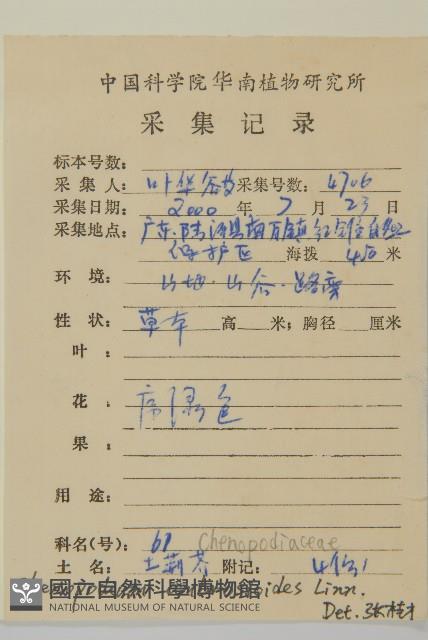 中国科学院华南植物研究所
采集记录
标本号数:
采集人: 叶华谷 采集号数: 4706
采集日期: 2000 年 7 月 23 日
采集地点: 广东·陆河县南万镇红锥自然
保护区 海拨 450 米
环境: 山地·山谷·路旁
性状: 草本 高 米; 胸径 厘米
叶:
花: 绿色
果:
用途:
科名(号): 61 Chenopodiaceae
土名: 土荆芥 附记: 4份
Linn.
Det. 张桂才
國立自然科學博物館
NATIONAL MUSEUM OF NATURAL SCIENCE